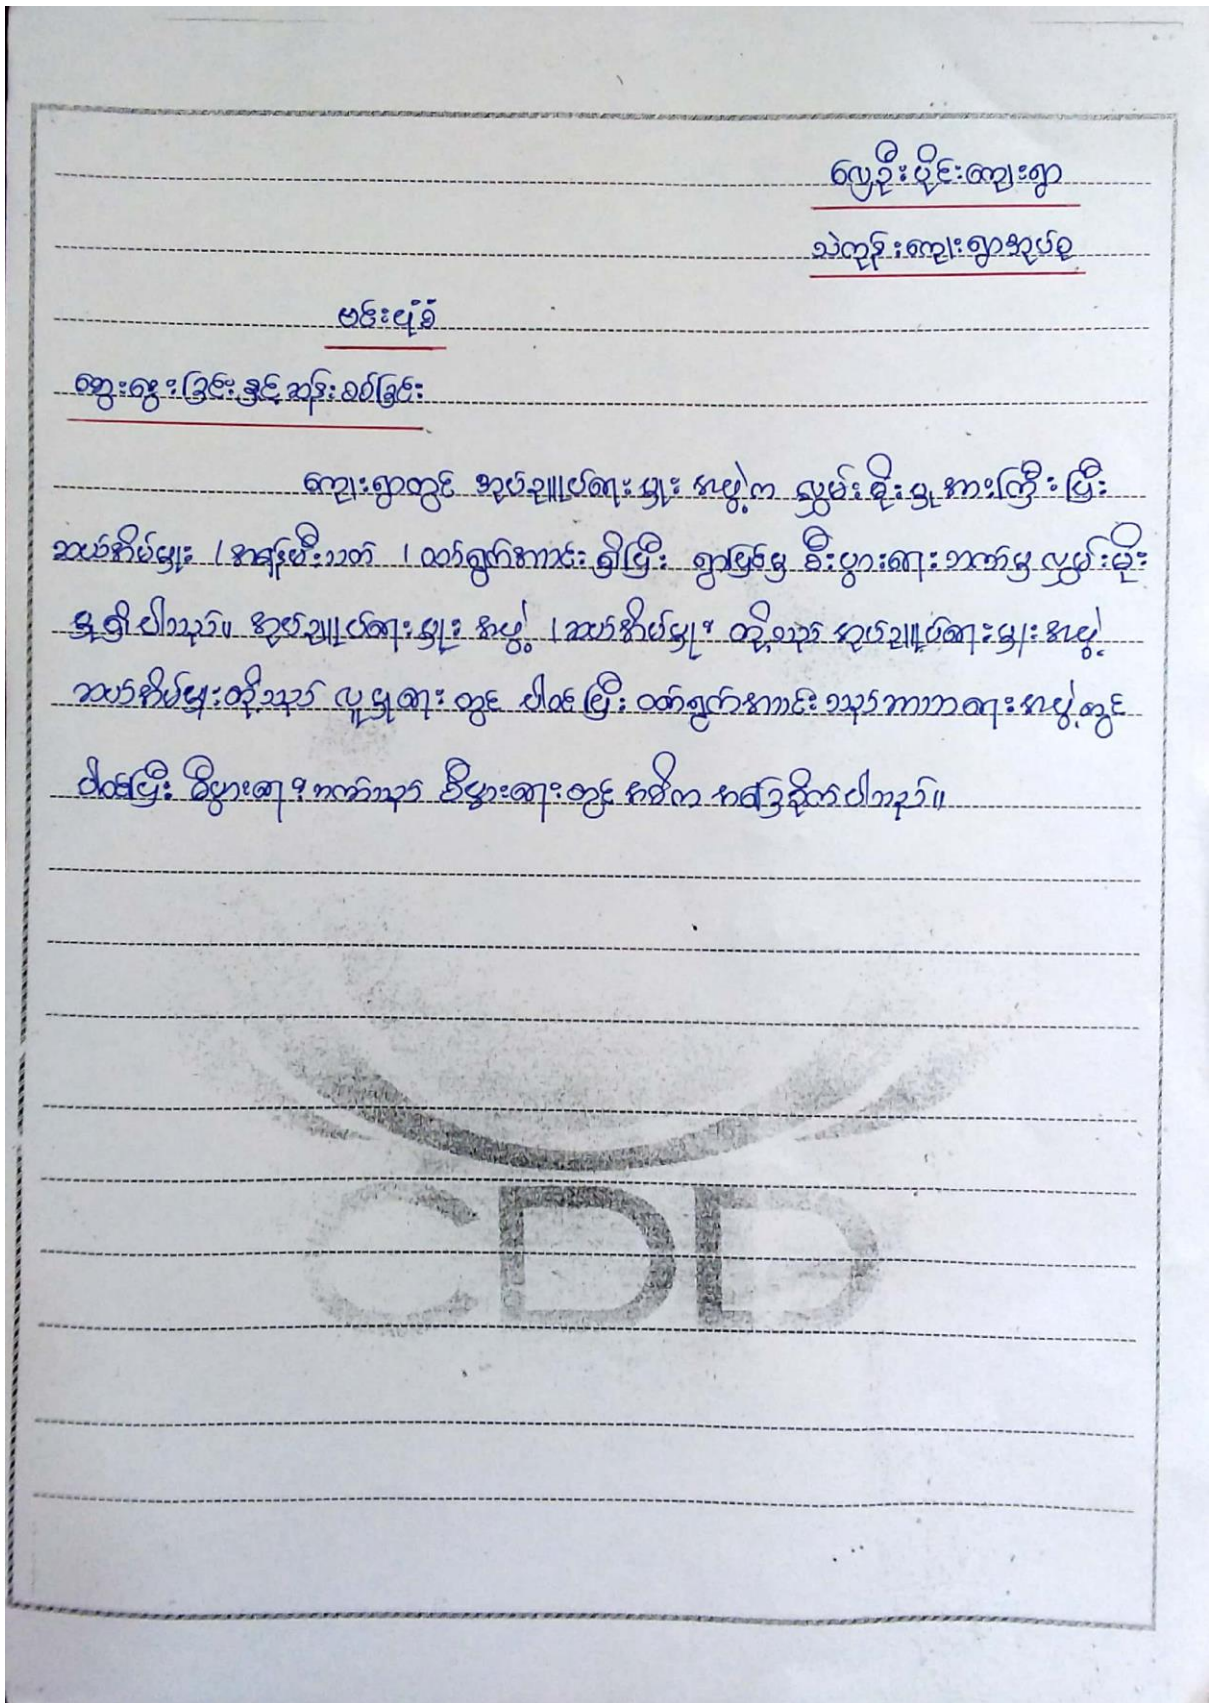 လှေဦးပိုင်းကျေးရွာ
သဲကုန်းကျေးရွာအုပ်စု
ဗင်းပုံစံ
ဆွေးနွေးခြင်းနှင့်ဆန်းစစ်ခြင်း
ကျေးရွာတွင် အုပ်ချုပ်ရေးမှူး အဖွဲ့က လွှမ်းမိုးမှုအားကြီးပြီး
ဆယ်အိမ်မှူး ၊ အရန်မီးသတ် ၊ ထပ်ရွက်အောင်း ရှိပြီး ရွာပြင်မှ စီးပွားရေးဘဏ်မှ လွှမ်းမိုး
မှုရှိပါသည်။ အုပ်ချုပ်ရေးမှူး အဖွဲ့ ၊ ဆယ်အိမ်မှူး တို့သည် အုပ်ချုပ်ရေးမှူးအဖွဲ့
ဆယ်အိမ်မှူးတို့သည် လူမှုရေး တွင် ပါဝင်ပြီး ထပ်ရွက်အောင်းသည် ဘာသာရေးအဖွဲ့တွင်
ပါဝင်ပြီး စီပွားရေးဘဏ်သည် စီပွားရေးတွင် အဓိက အခြေခိုက်ပါသည်။
CDD